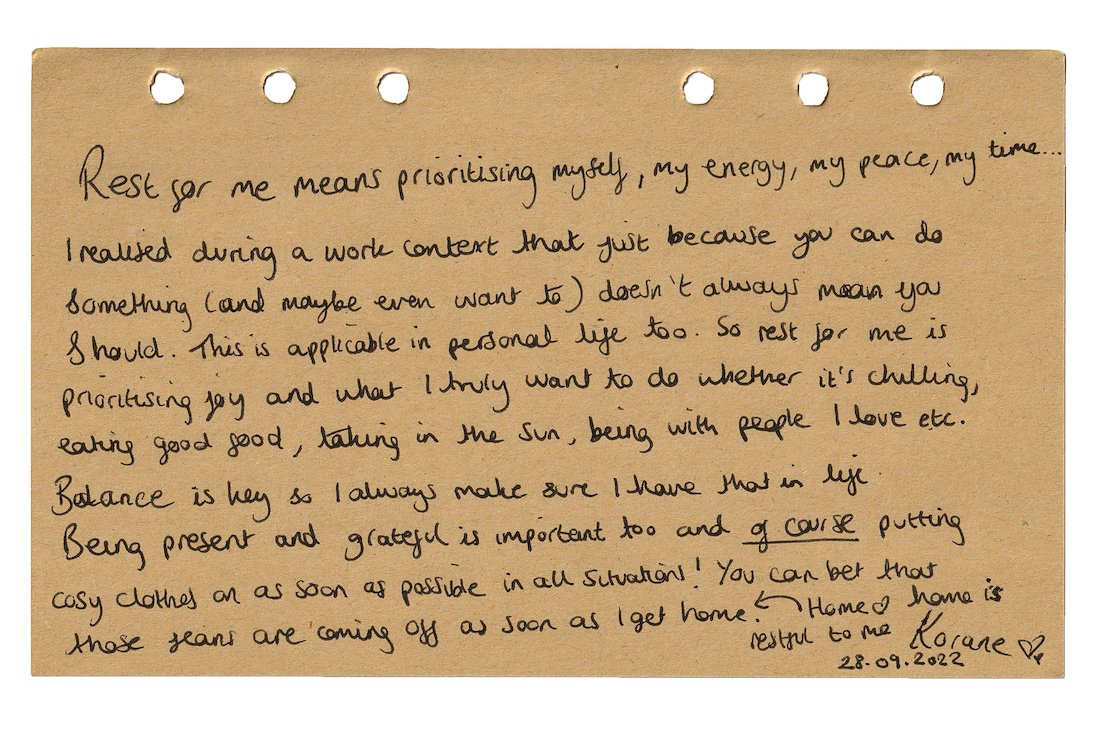 Rest for me means prioritising myself, my energy, my peace, my time...
I realised during a work context that just because you can do
something (and maybe even want to) doesn't always mean you
should. This is applicable in personal life too. So rest for me is
prioritising joy and what I truly want to do whether it's chilling,
eating good food, taking in the sun, being with people I love etc.
Balance is key so I always make sure I have that in life.
Being present and grateful is important too and of course putting
cosy clothes on as soon as possible in all situations! You can bet that
those jeans are coming off as soon as I get home. ← Home♡ home is
restful to me Korane ♡
28.09.2022